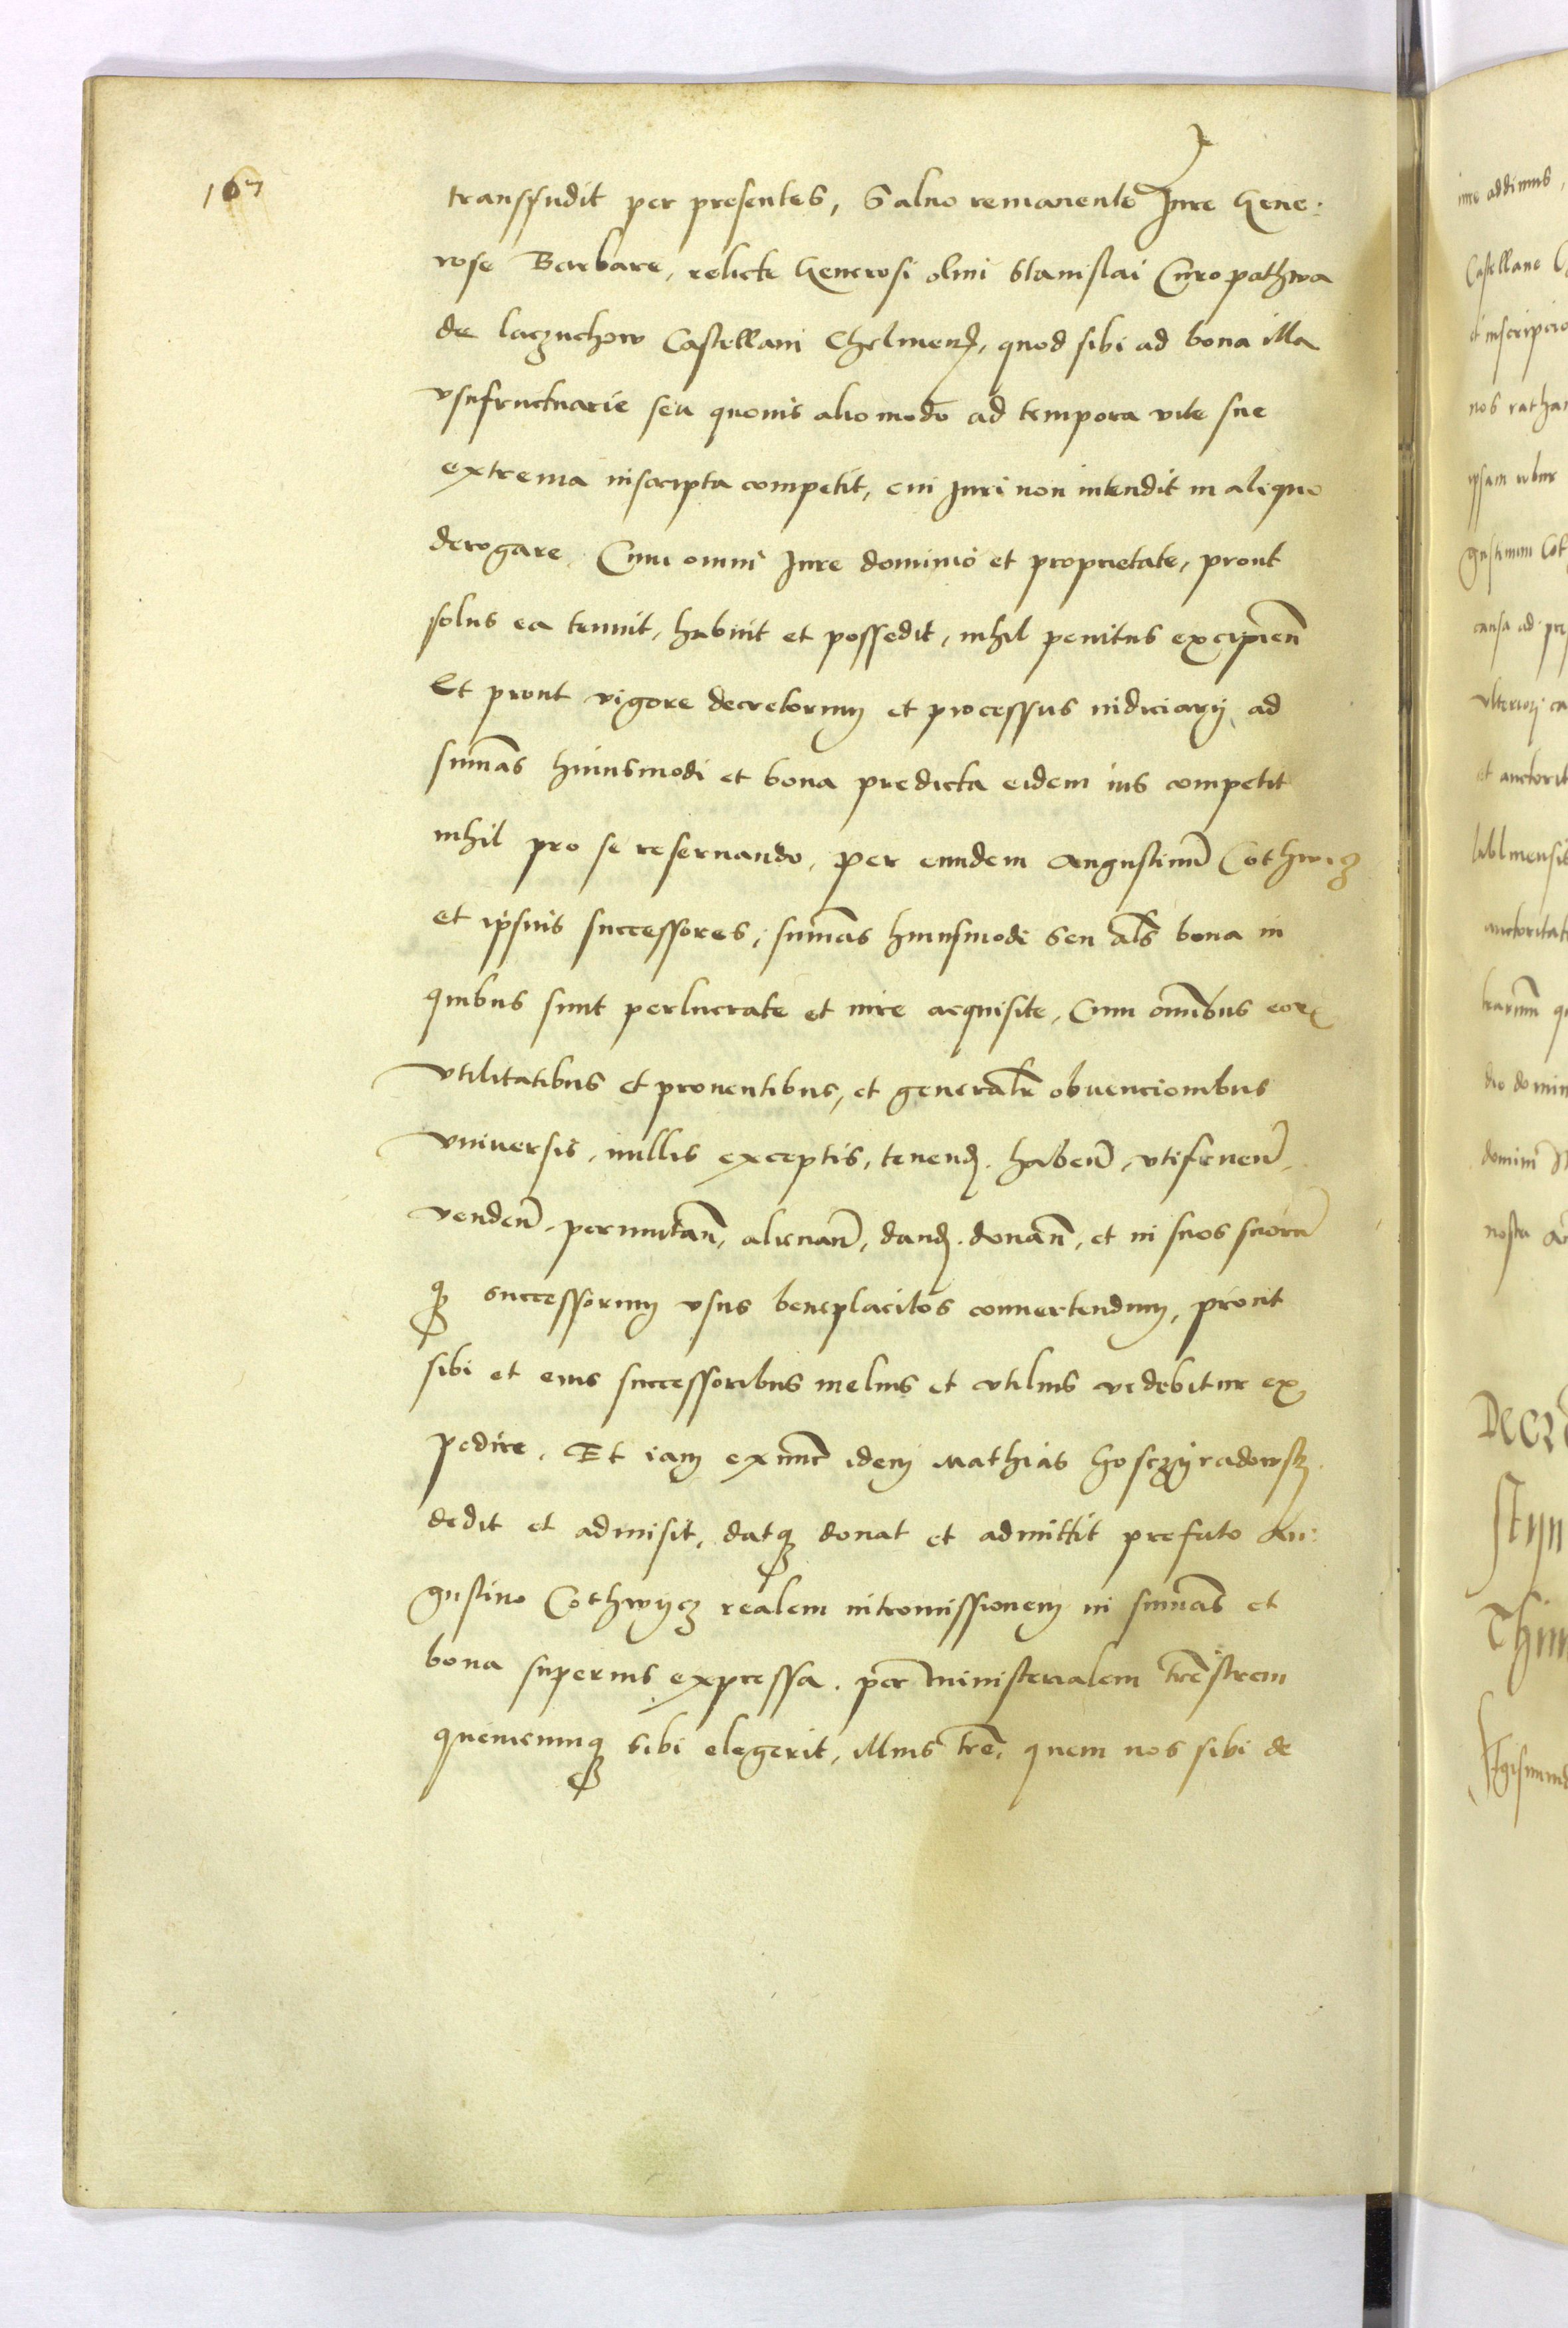 167
transfudit per presentes, Saluo remanente Jure Gene:
rose Barbare, relicte Generosi olim Stanislai Curopathwa
de laczuchow Castellani Chelmenß, quod sibi ad bona illa
vsufructuarie seu quouis alio modo ad tempora vite sue
extrema inscripta competit, cui Juri non intendit in aliquo
derogare. Cum omni Jure dominio et proprietate, prout
solus ea tenuit, habuit et possedit, nihil penitus excipien̄
Et prout vigore decretorum et processus iudiciarij, ad
sum̄as huiusmodi et bona predicta eidem ius competit
nihil pro se reseruando, per eundem Augustinū Cothwicz
et ipsius successores, sum̄as huiusmodi seu al̄s bona in
quibus sunt perlucrate et iure acquisite, Cum om̄ibus eoꝝ
vtilitatibus et prouentibus, et generalr̄ obuencionibus
vniuersis, nullis exceptis, tenend. haben̄, vtifruen̄,
venden̄, permutan̄, alienan̄, dand. donan̄, et in suos suorū
qꝫ successorum vsus beneplacitos conuertendum, prout
sibi et eius successoribus melius et vtilius videbitur ex
pedire. Et iam exnunc idem Mathias Gosczyradowsk
dedit et admisit, datqꝫ donat et admittit prefato Au:
gustino Cothwycz realem intromissionem in sum̄as et
bona superius expressa. per ministerialem trēstrem
quemcumqꝫ sibi elegerit, illius trē, quem nos sibi de